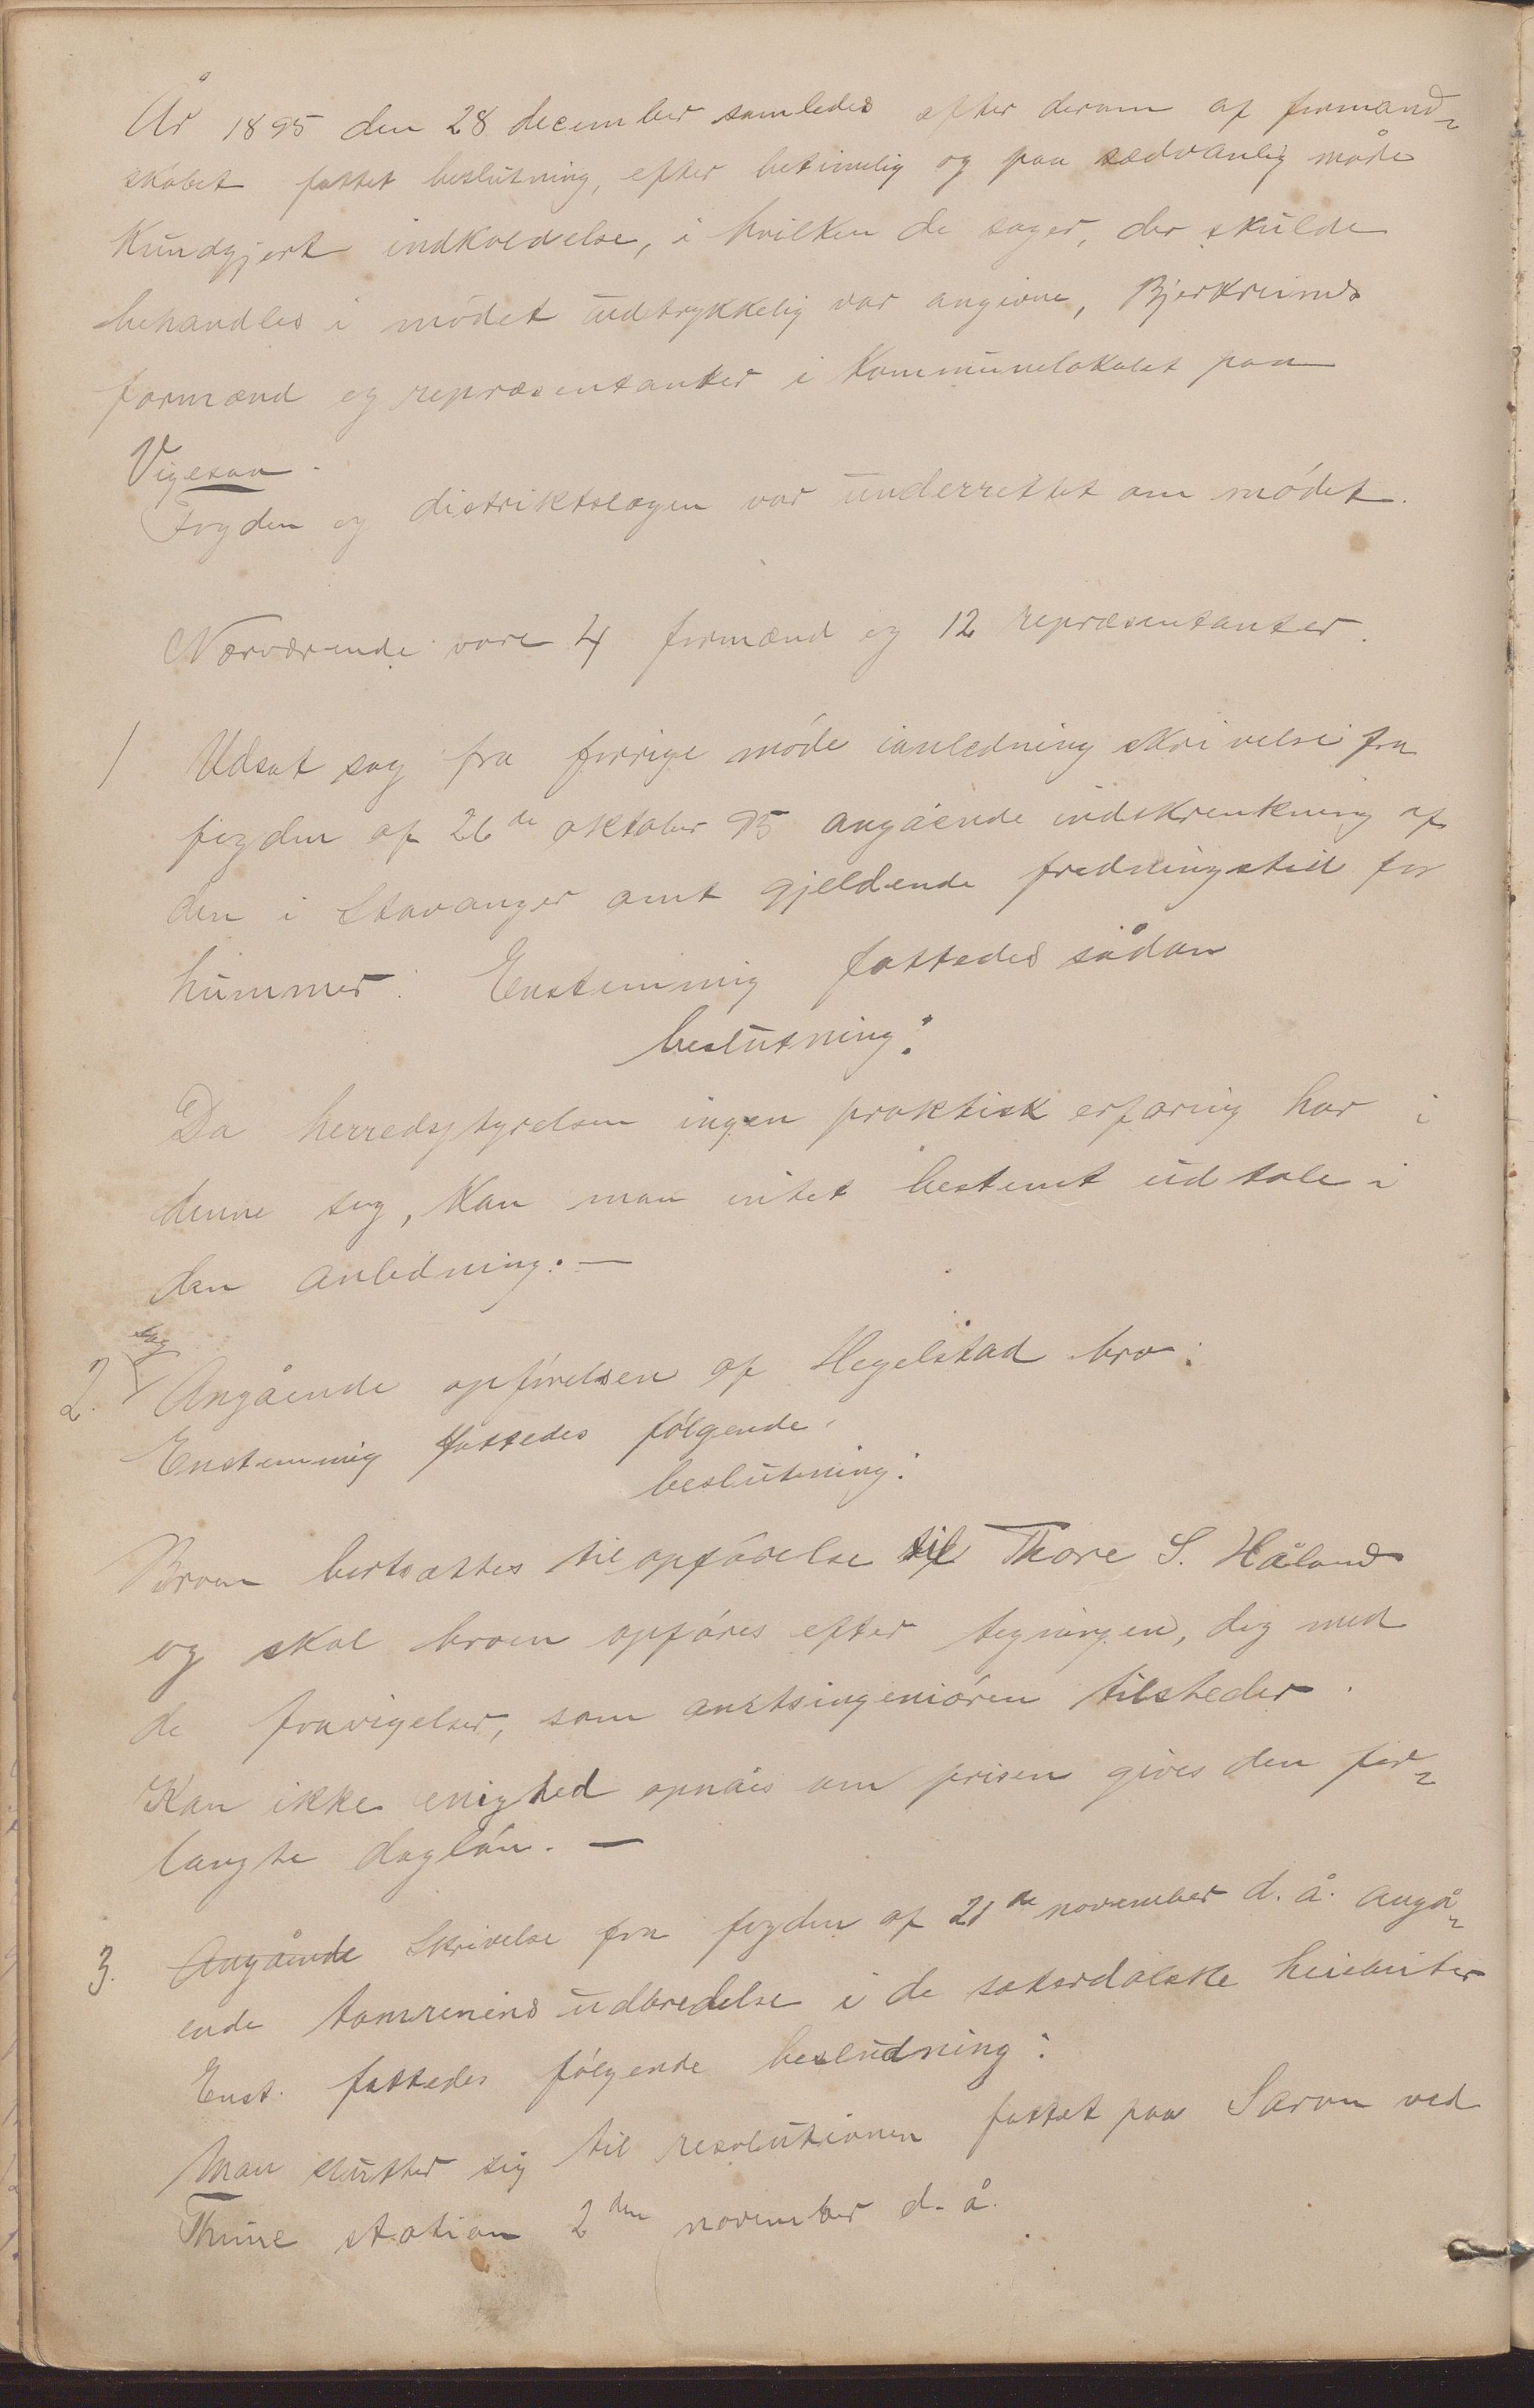 År 1895 den 28 december samledes efter derom af formand-
skabet fattet beslutning, efter betimelig og paa sædvanlig måde
kundgjort indkaldelse, i hvilken de sager, der skulde
behandles i mødet udtrykkelig var angivne, Bjerkreims
formænd og repræsentanter i Kommunelokalet paa
Vigesaa.
Fogden og distriktslægen var underrettet om mødet.
Nærværende vare 4 formænd og 12 repræsentanter.
1 Udsat sag fra forrige møde ianledning skrivelse fra
fogden af 26de oktober 95 angående indskrenkning af
den i Stavanger amt gjeldende fredningstid for
hummer. Enstemmig fattedes sådan
beslutning:
Da herredsstyrelsen ingen praktisk erfaring har i
denne sag, kan man intet bestemt udtale i
den anledning. —
sag
2. Angående opførelsen af Hegelstad bro:
Enstemmig fattedes følgende
beslutning:
Broen bortsættes til opførelse til Thore S. Håland
og skal broen opføres efter tegningen, dog med
de fravigelser, som amtsingeniøren tilsteder.
Kan ikke enighed opnåes om prisen gives den for-
langte dagløn. —
3. Angående Skrivelse fra fogden af 21de november d. å. angå-
ende tamrenens udbredelse i de sætersdalske heievider
Enst. fattedes følgende besludning:
Man slutter sig til resolutionen fattet paa Saron ved
Thime station 2den november d. å.